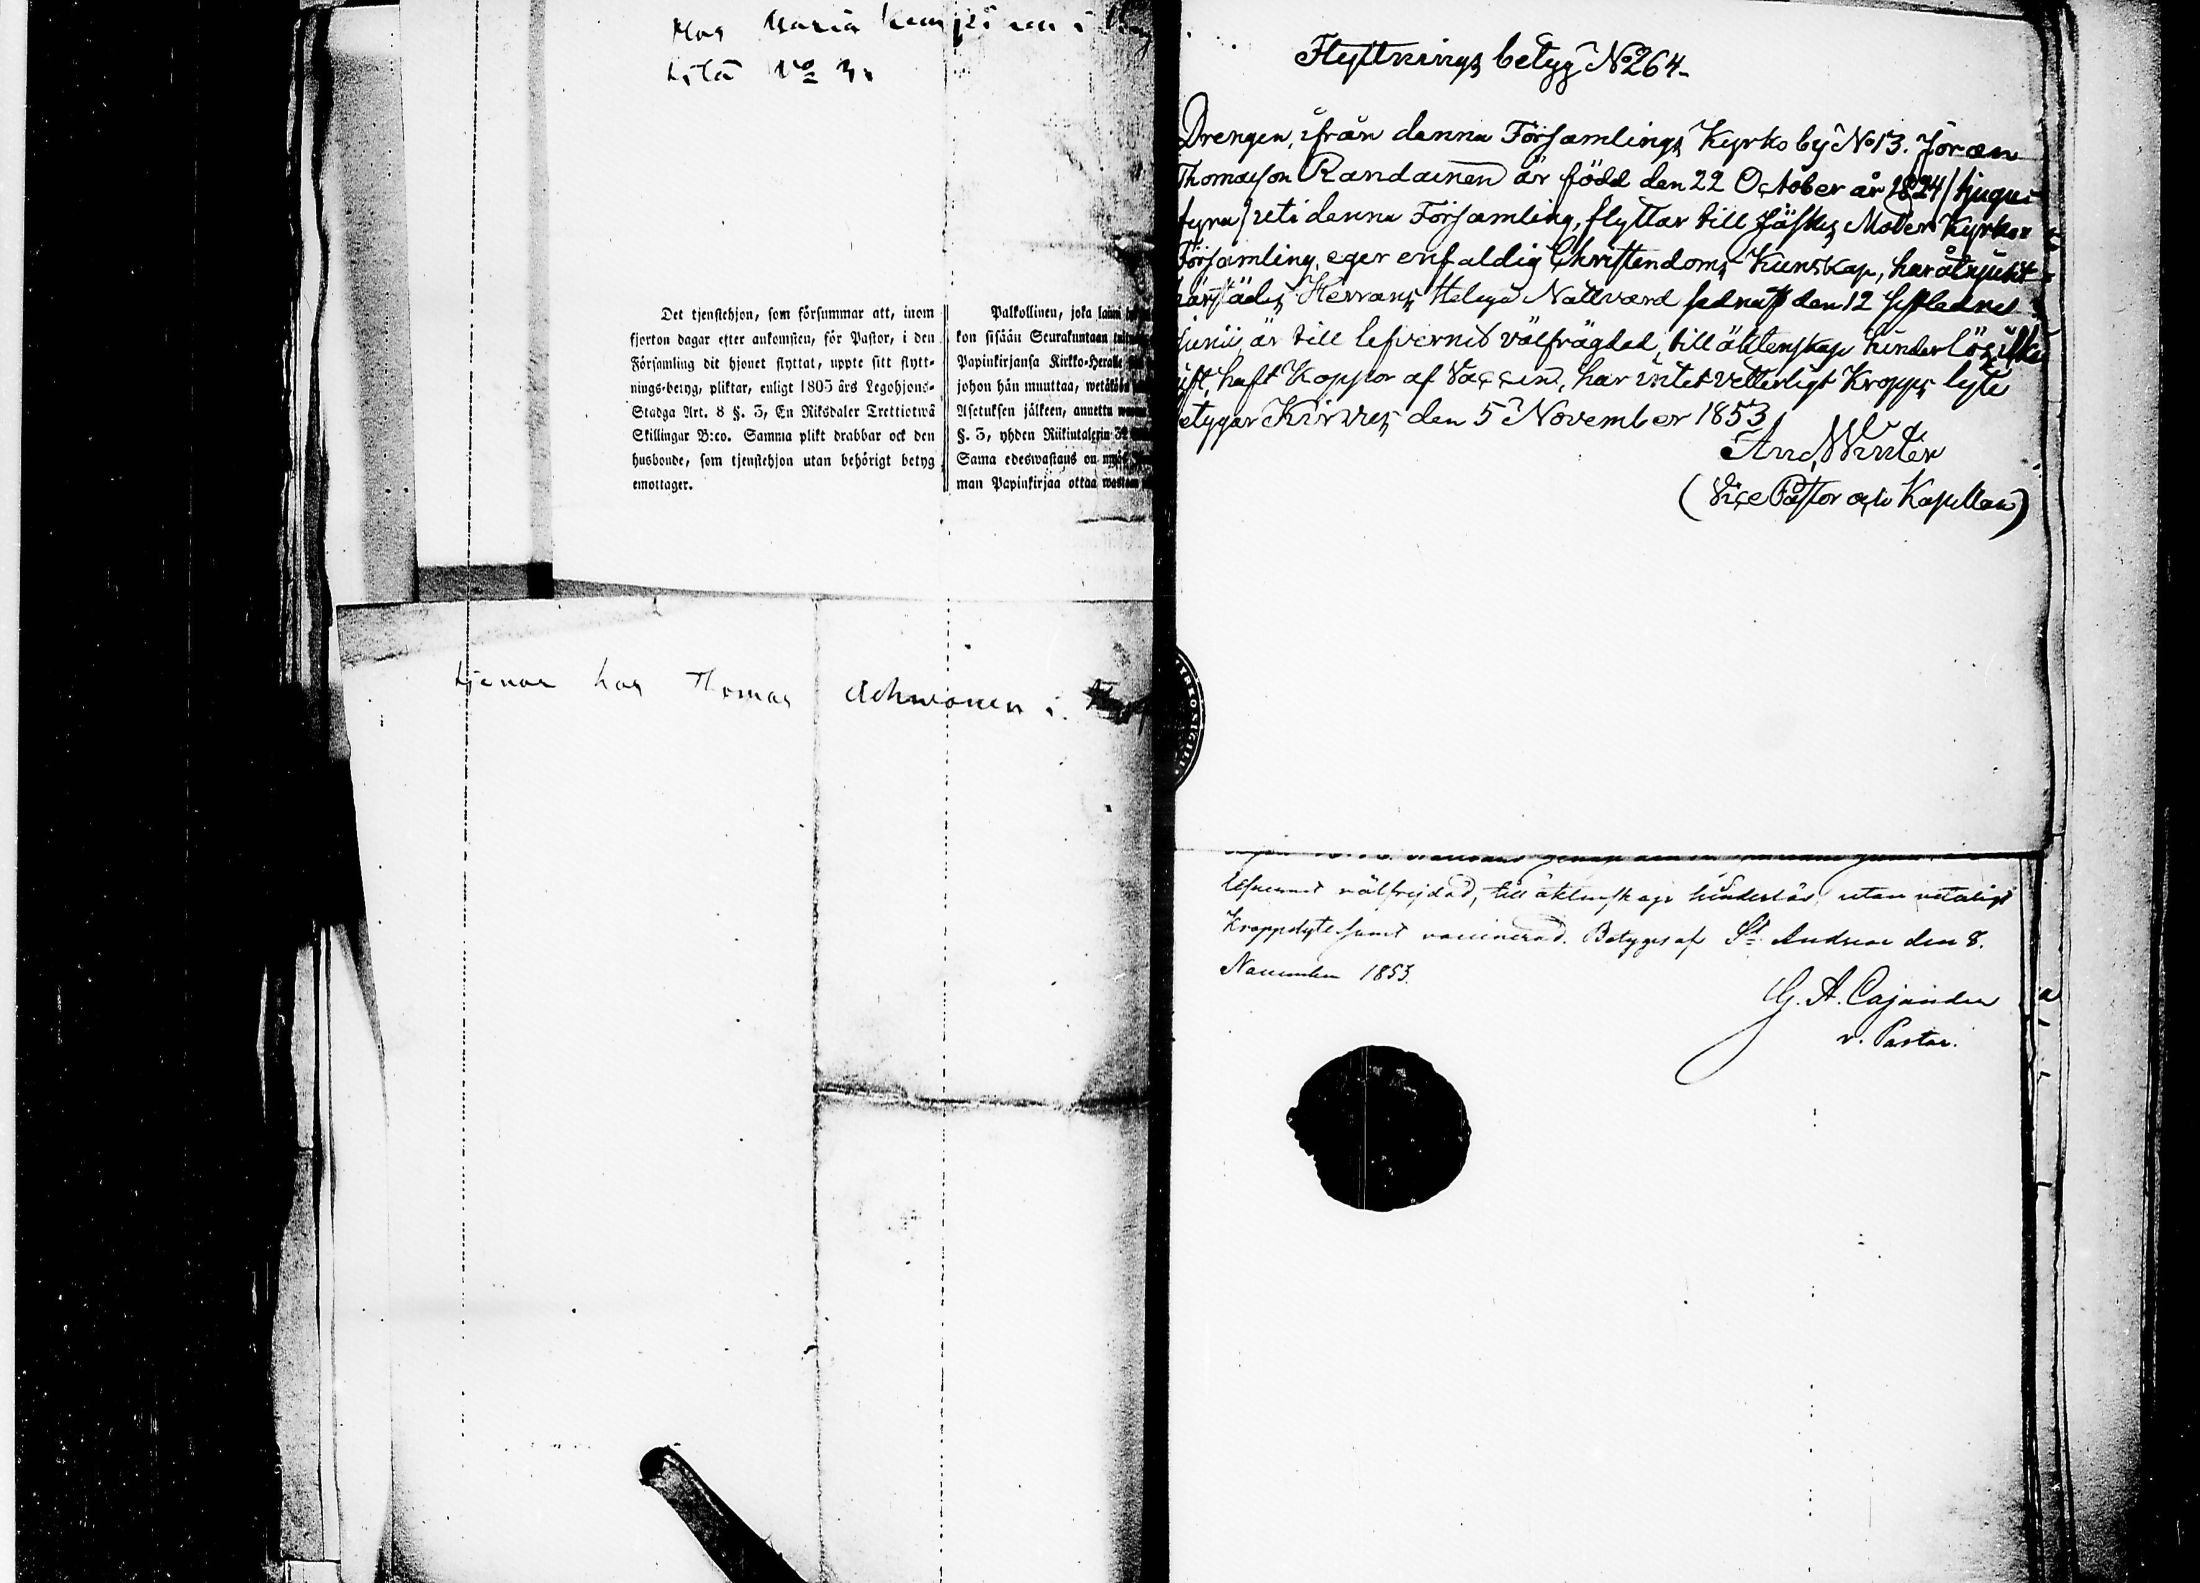 Hos Maria
No 3.
Det tjenstehjon, som försummar att, inom
fjorton dagar efter ankomsten, för Pastor, i den
Församling dit hjonet flyttat, uppte sitt flytt-
nings-betyg, pliktar, enligt 1805 års Legohjons-
Stadga Art. 8 §. 3, En Riksdaler Trettiotwå
Skillingar B:co. Samma plikt drabbar ock den
husbonde, som tjenstehjon utan behörigt betyg
emottager.
Palkollinen, joka
kon sisään Seurakuntaan
Papinkirjansa Kirkko-Herralle
johon hän muuttaa,
Asetuksen jälkeen, annettu
§. 3, yhden Riikintalerin 32
Sama edeswastaus on
man Papinkirjaa ottaa wastaan
tjenar hos Thomas i
Flyttnings betyg No 264.
Drengen, ifrån denna Församlings Kyrko by No 13. Jöran
Thomasson Randainen är född den 22 October år 1824 / tjugu-
fyra / uti denna Församling, flyttar till Jäskis Moder Kyrko
Församling, eger enfaldig Christendoms Kunskap, har åtnjutit
härstädes Herrans Heliga Nattvard sednast den 12 sistledne
Junii är till lefvernet välfrägdad, till äktenskap hinderlös
haft Koppor af Vaccin, har intet vetterligt Kropps lyte
betygar Kirvus den 5 November 1853
And. Winter
(Vice Pastor och Kapellan)
lefvernet välfrejdad, till äktenskap hinderlös utan veterligt
Kroppslyte samt vaccinerad. Betygas af St. Andreae den 8.
November 1853.
G. A. Cajander
v. Pastor.